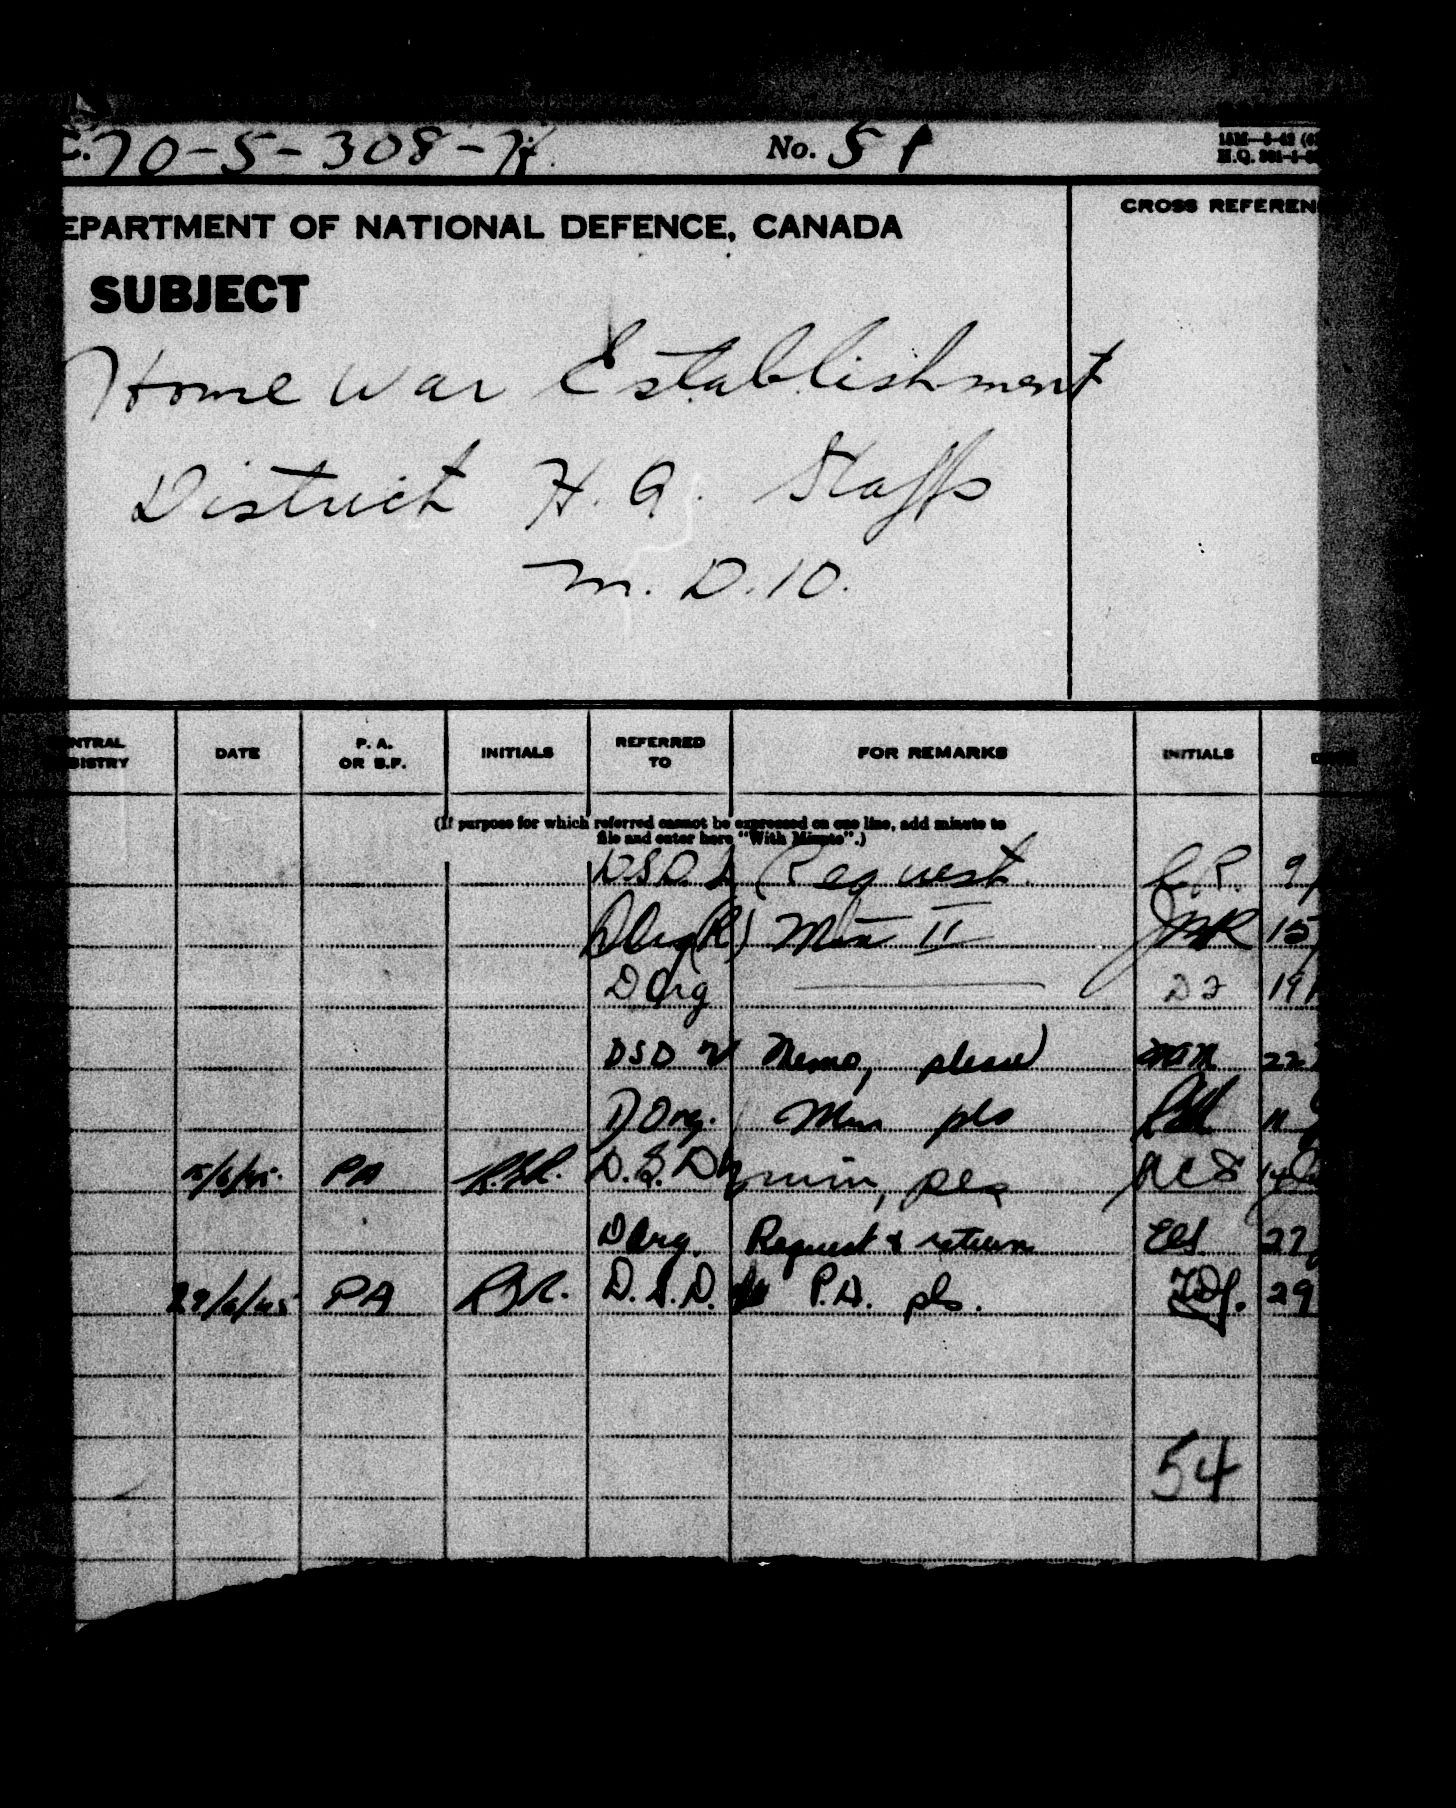 70-5-308-7 No. 51
DEPARTMENT OF NATIONAL DEFENCE, CANADA
CROSS REFEREN
SUBJECT
Home War Establishment
District H.Q. Staffs
M.D.10.
NTRAL ISTRY DATE P. A. OR B.F. INITIALS REFERRED TO FOR REMARKS INITIALS
(If purpose for which referred cannot be expressed on one line, add minute to
file and enter here "With Minute".)
DSD Request. C.R. 9
DOrg(R) Min II JMR 15
DOrg D2 19
DSD W Memo, please 22
DOrg. Min pls 11
PA D.S.D W min, pls 14
DOrg. Request & return 27
29/6/45 PA D.S.D. P.A. pls. 29
54